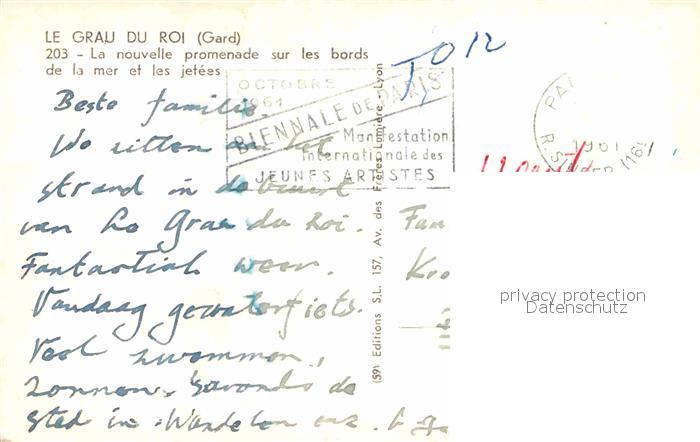 LE GRAU DU ROI (Gard)
203 - La nouvelle promenade sur les bords
de la mer et les jetées
OCTOBRE
1961
BIENNALE DE PARIS
Manifestation
Internationale des
JEUNES ARTISTES
PA
R. SINGER (16e)
1961
Beste familie.
We zitten het
strand in de buurt
van Le Grau du Roi.
Fantastisch weer.
Vandaag gewaterfietst.
Veel zwemmen,
zonnen. Savonds de
sted in. Wandelen enz.
Fam
Kro
(59) Editions S.L. 157, Av. des Frères-Lumière, Lyon
privacy protection
Datenschutz